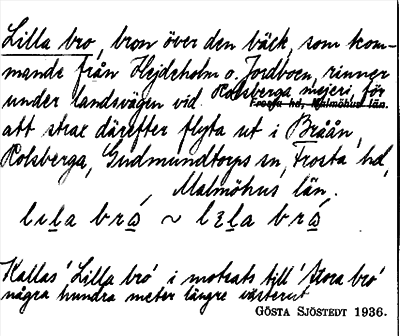 Lilla bro, bron över den bäck, som kom-
mande från Hejdeholm o. Jordboen, rinner
under landsvägen vid Rolsberga mejeri, för
Frosta hd, Malmöhus län.
att strax därefter flyta ut i Bråån,
Rolsberga, Gudmundtorps sn, Frosta hd,
Malmöhus län.
lıla brá ~ lıla brá
Kallas 'Lilla bro' i motsats till 'Stora bro'
några hundra meter längre västerut
GÖSTA SJÖSTEDT 1936.